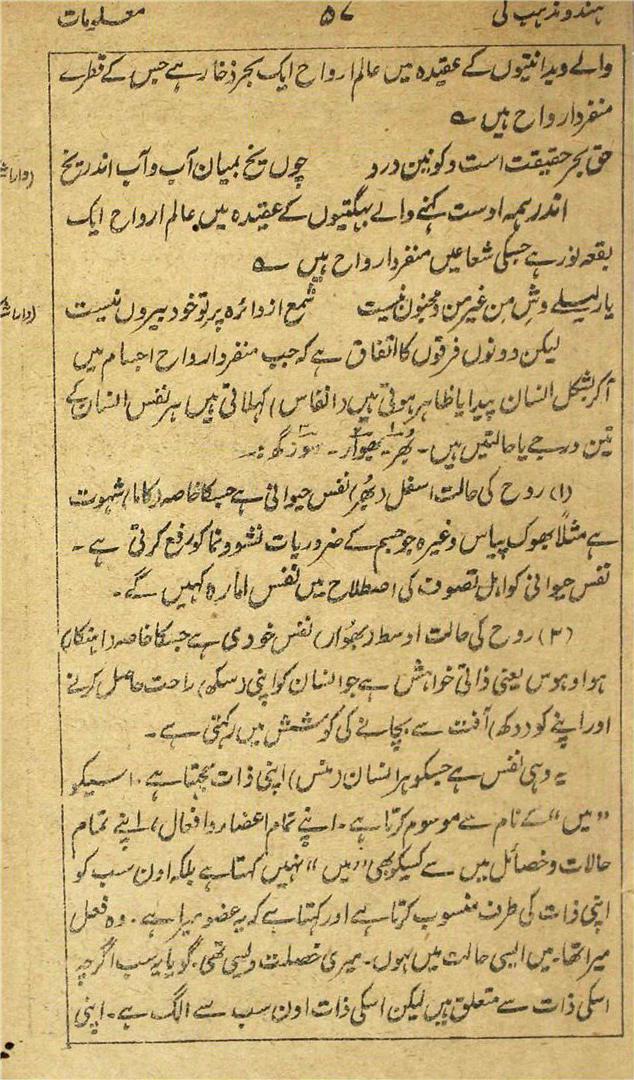 ہندو مذہب کی ۵۷ معلومات
والے ویدانتیوں کے عقیدہ میں عالم ارواح ایک بحر ذخار ہے جس کے قطرے
منفرد ارواح ہیں ؎
حق بحر حقیقت است و کونین درو چوں یخ بمیان آب و آب اندر یخ
اندر ہمہ اوست کہنے والے بھگتیوں کے عقیدہ میں عالم ارواح ایک
بقعہ نور ہے جسکی شعاعیں منفرد ارواح ہیں ؎
یار لیلے وش من غیر من و مجنون نیست شمع از دائرہ پرتو خود بیروں نیست
لیکن دونوں فرقوں کا اتفاق ہے کہ جب منفرد ارواح اجسام میں
آکر بشکل انسان پیدا یا ظاہر ہوتی ہیں (انفاس) کہلاتی ہیں ہر نفس انسان کے
تین درجے یا حالتیں ہیں۔ بُھر۔ بھوار۔
(۱) روح کی حالت اسفل (بُھر) نفس حیوانی ہے جسکا خاصہ (کاما) شہوت
ہے مثلاً بھوک پیاس وغیرہ جو جسم کے ضروریات نشوونما کو رفع کرتی ہے۔
نفس حیوانی کو اہل تصوف کی اصطلاح میں نفس امارہ کہیں گے۔
(۲) روح کی حالت اوسط (بھوار) نفس خودی ہے جسکا خاصہ (اہنکار)
ہوا و ہوس یعنی ذاتی خواہش ہے جو انسان کو اپنی (سکھ) راحت حاصل کرنے
اور اپنے کو (دکھ) آفت سے بچانے کی کوشش میں رکھتی ہے۔
یہ وہی نفس ہے جسکو ہر انسان (منس) اپنی ذات سمجھتا ہے۔ اسیکو
”میں“ کے نام سے موسوم کرتا ہے۔ اپنے تمام اعضا (و افعال) اپنے تمام
حالات و خصائل میں سے کسیکو بھی ”میں“ نہیں کہتا ہے بلکہ اون سب کو
اپنی ذات کی طرف منسوب کرتا ہے اور کہتا ہے کہ یہ عضو میرا ہے۔ وہ فعل
میرا تھا۔ میں ایسی حالت میں ہوں۔ میری خصلت ویسی تھی۔ گویا یہ سب اگرچہ
اسکی ذات سے متعلق ہیں لیکن اسکی ذات اون سب سے الگ ہے۔ اپنی